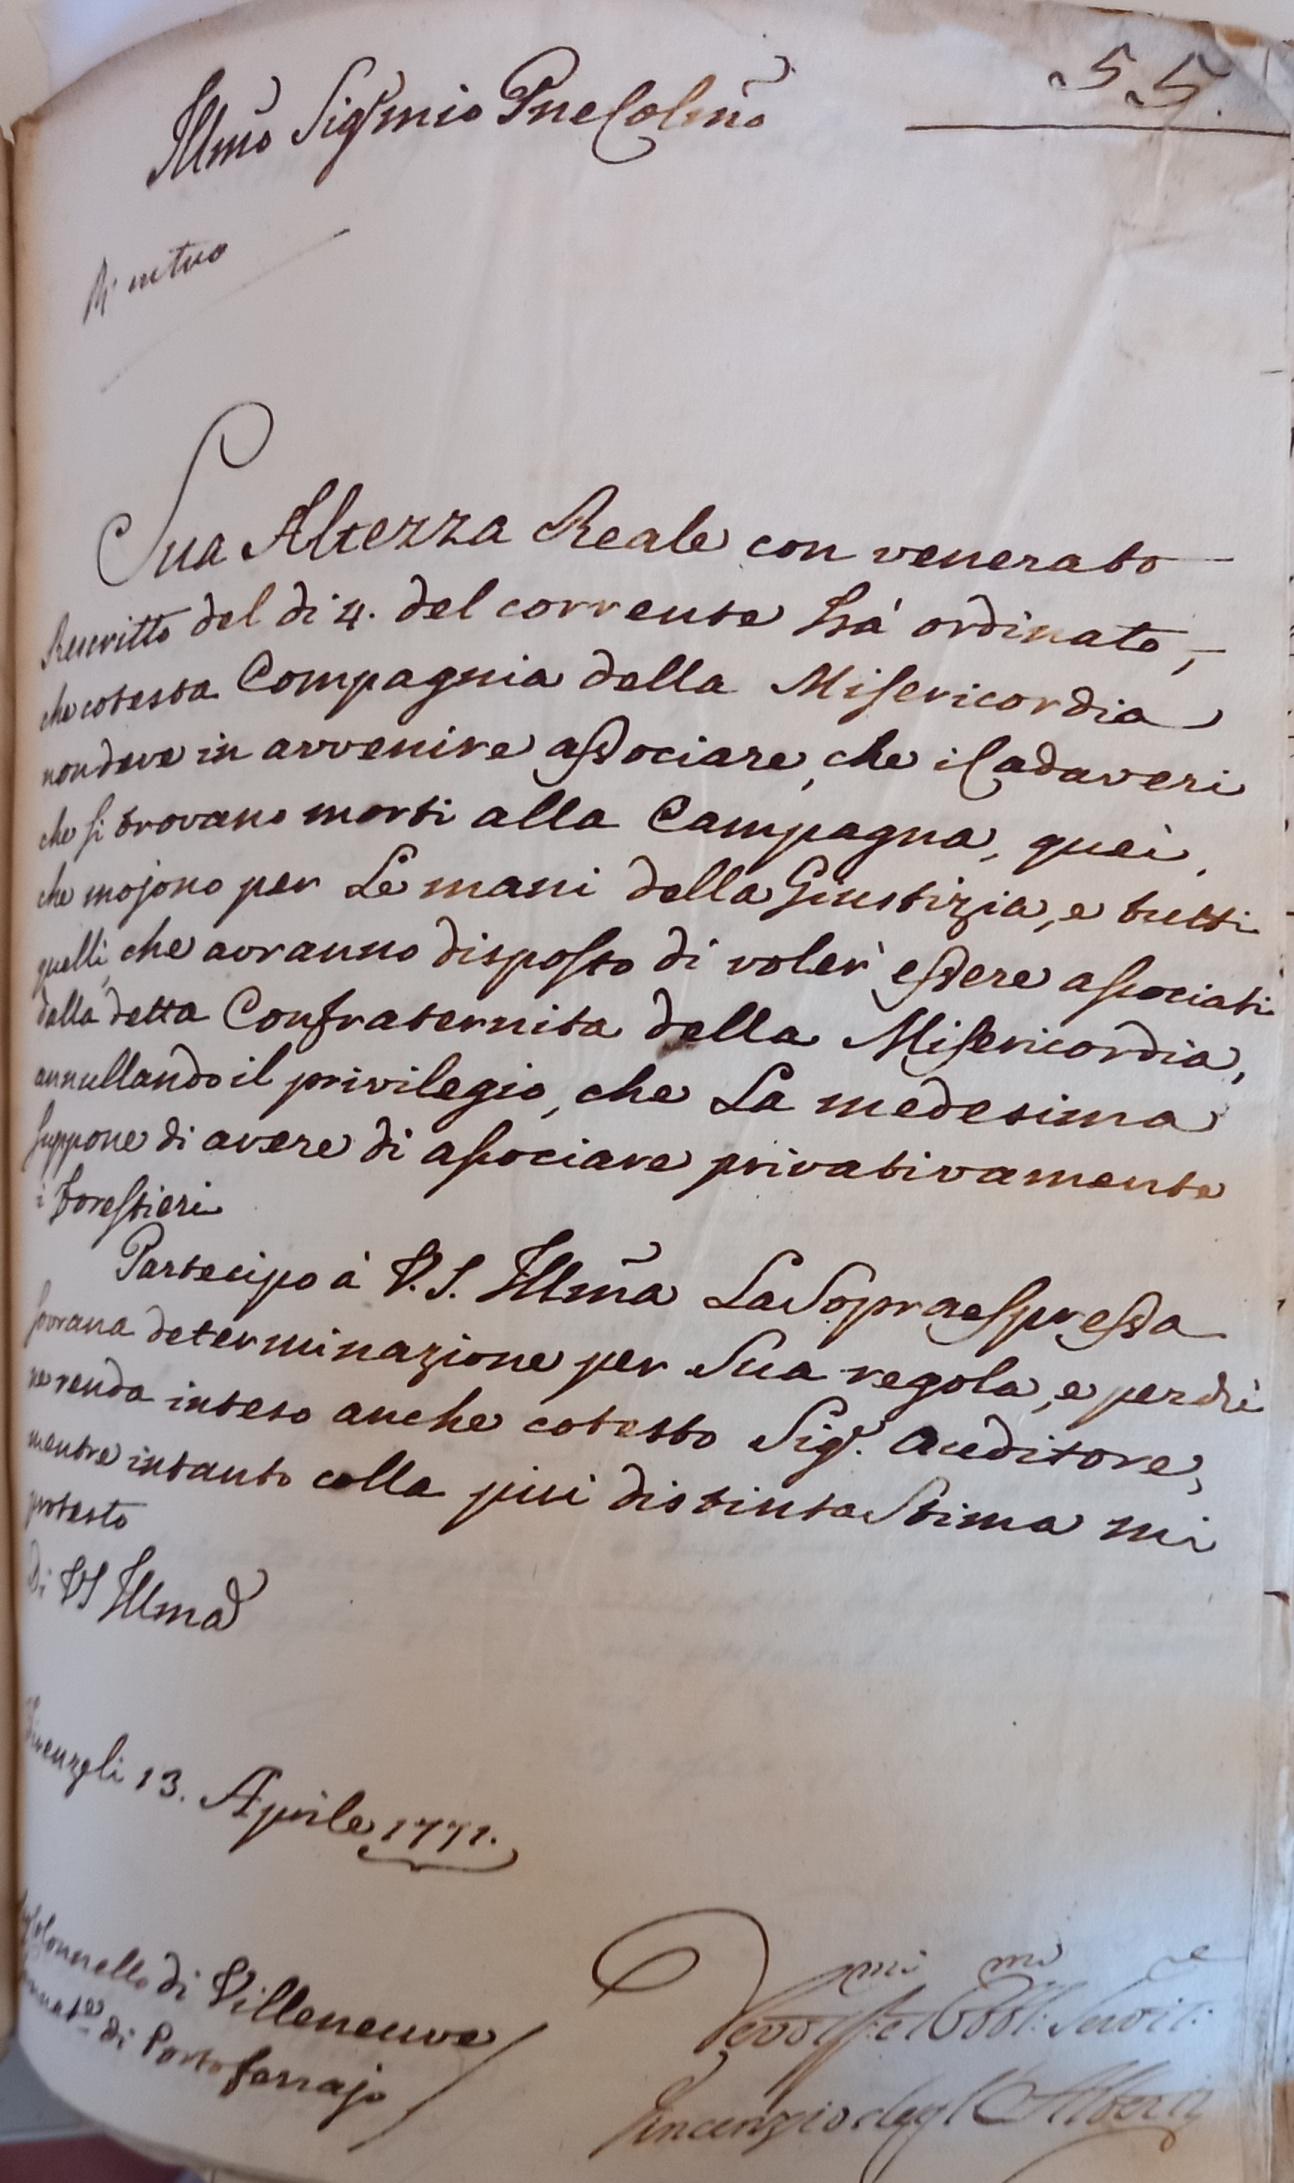 55.
Illmo Sigr mio Pne Colmo
Sua Altezza Reale con venerato
Rescritto del di 4. del corrente hà ordinato,
che cotesta Compagnia della Misericordia
non deve in avvenire associare, che i Cadaveri
che si trovano morti alla Campagna, quei,
che mojono per Le mani della Giustizia, e tutti
quelli, che avranno disposto di voler essere associati
dalla detta Confraternita della Misericordia,
annullando il privilegio, che La medesima
suppone di avere di associare privativamente
i Forestieri
Partecipo à V. S. Illma La Sopraespressa
Sovrana determinazione per Sua regola, e perchè
ne renda inteso anche cotesto Sigr. Auditore,
mentre intanto colla piu distinta Stima mi
protesto
Di VS Illma
Firenze li 13. Aprile 1771.
Colonnello di Villeneuve
di Porto ferrajo
Devotmi Obblmo Servre
Vincenzio degl'Alberti